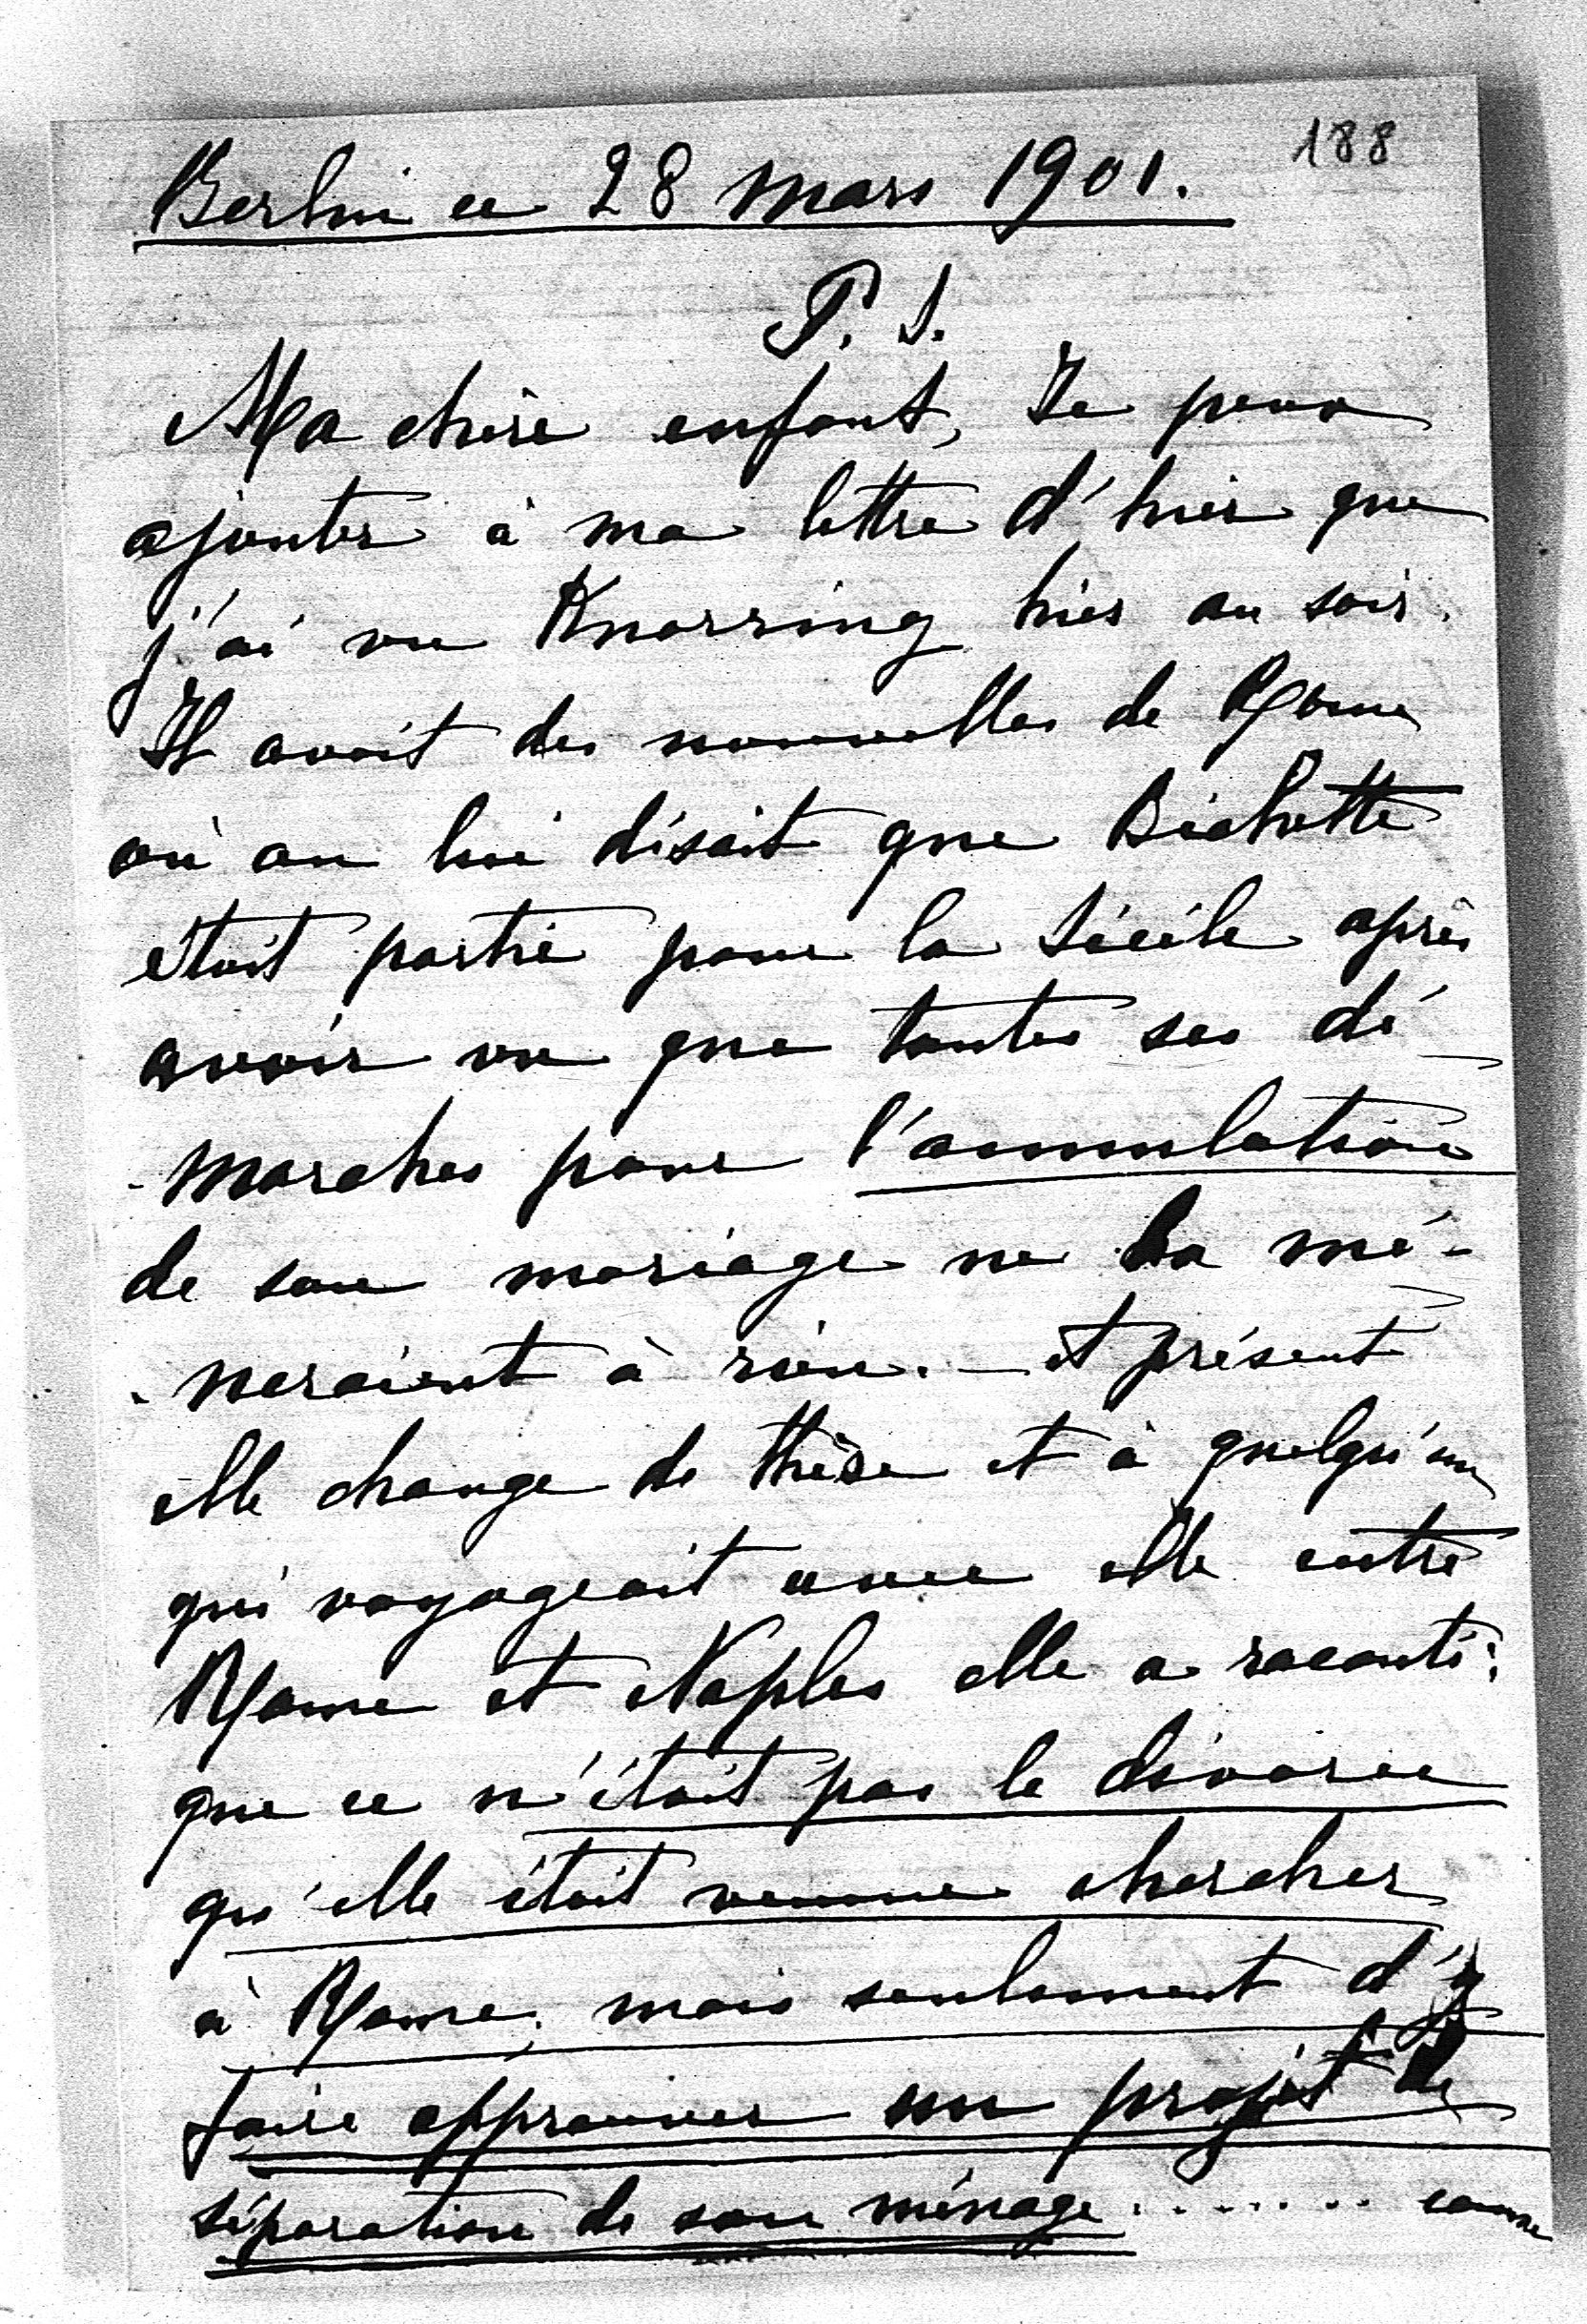 188
Berlin ce 28 mars 1901.
P. S.
Ma chère enfant, Je peux
ajouter à ma lettre d'hier que
j'ai vu Knorring hier au soir.
Il avait des nouvelles de Rome
où on lui disait que Bichette
était partie pour la Sicile après
avoir vu que toutes ses dé
-marches pour l'annulation
de son mariage ne la mé-
-neraient à rien. — et présent
elle change de thèse et à quelqu'un
qui voyageait avec elle entre
Rome et Naples elle a raconté:
que ce n'était pas le divorce
qu'elle était venue chercher
à Rome, mais seulement d'y
faire approuver un projet de
séparation de son ménage........ comme